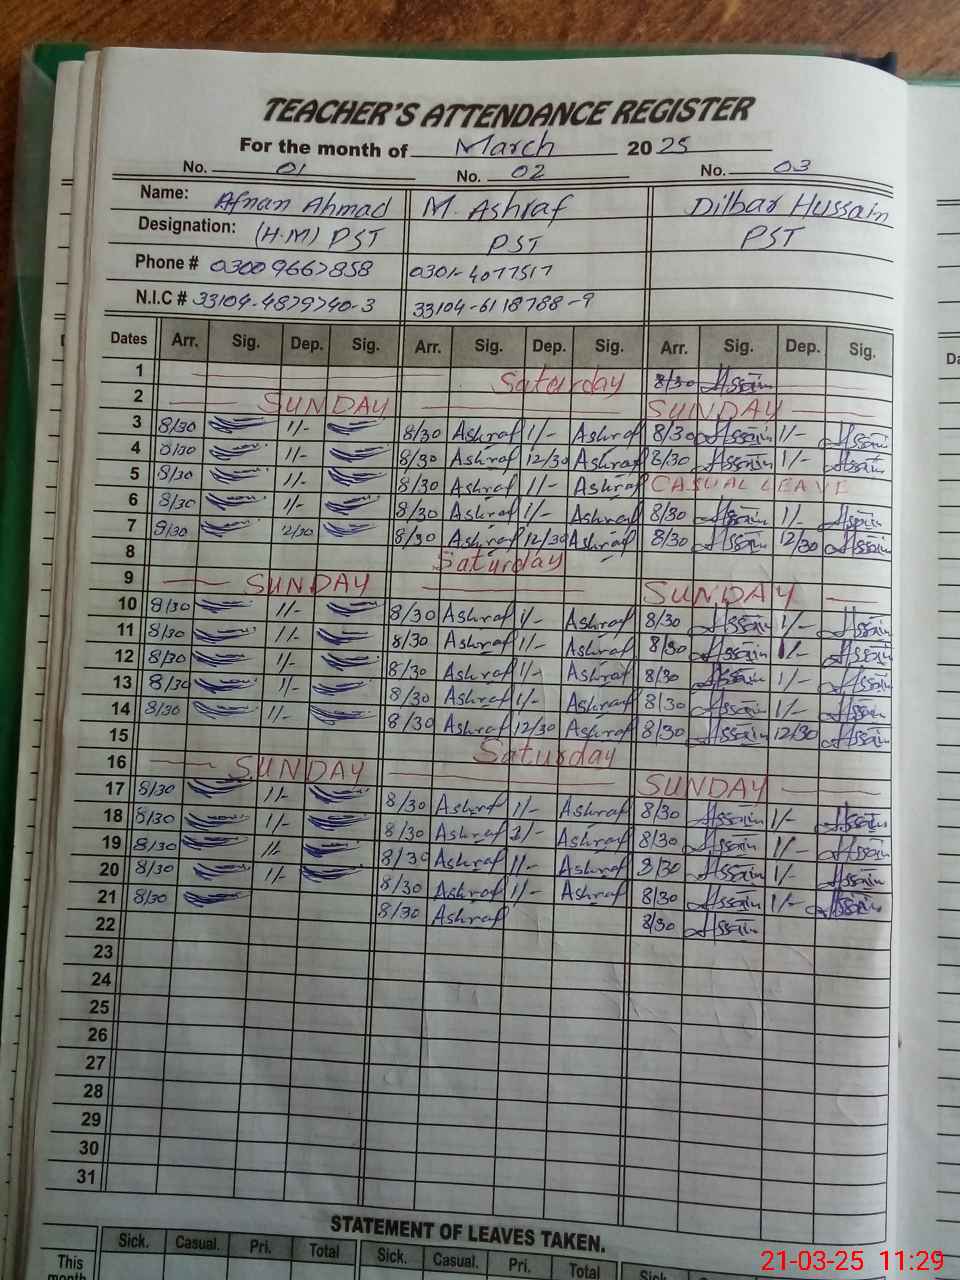 TEACHER'S ATTENDANCE REGISTER
For the month of March 2025
No. 01 No. 02 No. 03
Name: Afnan Ahmad M. Ashraf Dilbar Hussain
Designation: (H.M) PST PST PST
Phone # 03009667858 0301-4077517
N.I.C # 33104-4879740-3 33104-6118788-9
Dates Arr. Sig. Dep. Sig. Arr. Sig. Dep. Sig. Arr. Sig. Dep. Sig.
1 Saturday 8/30
2 SUNDAY SUNDAY
3 8/30 1/- 8/30 Ashraf 1/- Ashraf 8/30 1/-
4 8/30 1/- 8/30 Ashraf 12/30 Ashraf 8/30 1/-
5 8/30 1/- 8/30 Ashraf 1/- Ashraf CASUAL LEAVE
6 8/30 1/- 8/30 Ashraf 1/- Ashraf 8/30 1/-
7 8/30 12/30 8/30 Ashraf 12/30 Ashraf 8/30 12/30
8 Saturday
9 SUNDAY SUNDAY
10 8/30 1/- 8/30 Ashraf 1/- Ashraf 8/30 1/-
11 8/30 1/- 8/30 Ashraf 1/- Ashraf 8/30 1/-
12 8/30 1/- 8/30 Ashraf 1/- Ashraf 8/30 1/-
13 8/30 1/- 8/30 Ashraf 1/- Ashraf 8/30 1/-
14 8/30 1/- 8/30 Ashraf 12/30 Ashraf 8/30 12/30
15 Saturday
16 SUNDAY SUNDAY
17 8/30 1/- 8/30 Ashraf 1/- Ashraf 8/30 1/-
18 8/30 1/- 8/30 Ashraf 1/- Ashraf 8/30 1/-
19 8/30 1/- 8/30 Ashraf 1/- Ashraf 8/30 1/-
20 8/30 1/- 8/30 Ashraf 1/- Ashraf 8/30 1/-
21 8/30 8/30 Ashraf 8/30
22
23
24
25
26
27
28
29
30
31
STATEMENT OF LEAVES TAKEN.
Sick. Casual. Pri. Total Sick. Casual. Pri. Total Sick.
This
month
21-03-25 11:29